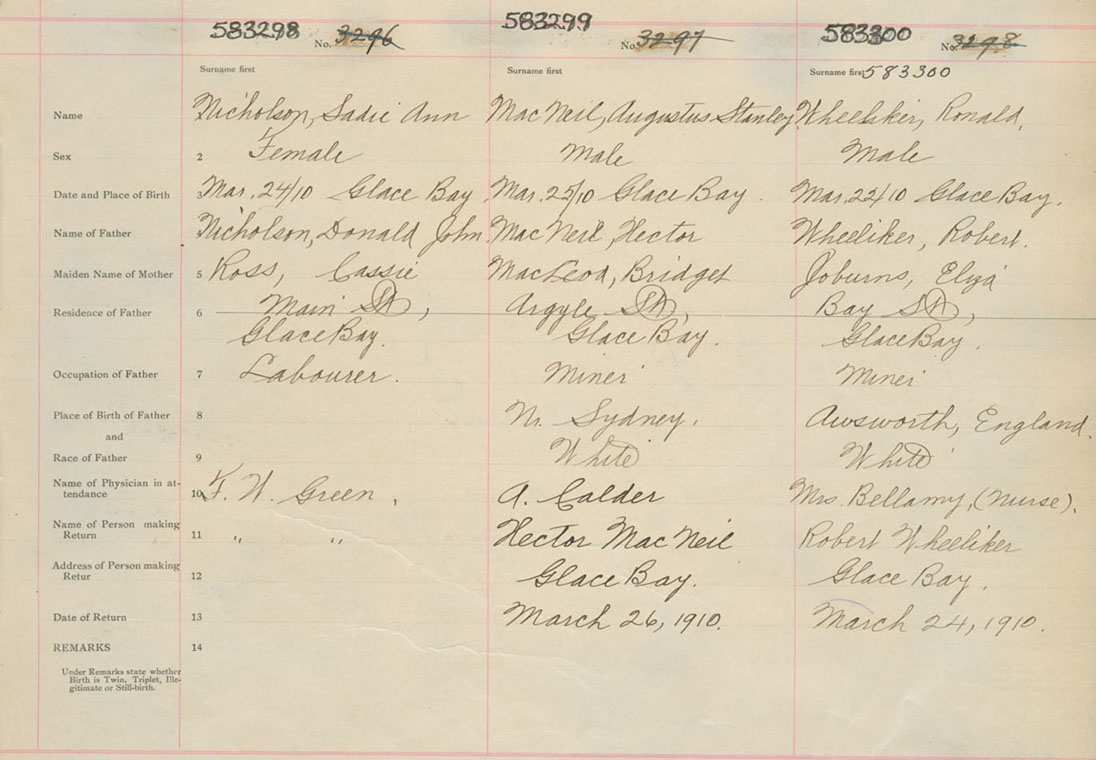 583298 No. 3296 583299 No. 3297 583300 No. 3298
Surname first Surname first Surname first 583300
Name Nicholson, Sadie Ann MacNeil, Augustus Stanley Wheeliker, Ronald,
Sex 2 Female Male Male
Date and Place of Birth 3 Mar. 24/10 Glace Bay Mar. 25/10 Glace Bay. Mar. 22/10 Glace Bay.
Name of Father Nicholson, Donald John MacNeil, Hector Wheeliker, Robert.
Maiden Name of Mother 5 Ross, Cassie MacLeod, Bridget Joburns, Eliza
Residence of Father 6 Main St, Argyle St, Bay St,
Glace Bay. Glace Bay. Glace Bay.
Occupation of Father 7 Labourer. Miner Miner
Place of Birth of Father 8 Nr. Sydney. Awsworth, England.
and
Race of Father 9 White White
Name of Physician in at-
tendance 10 F. W. Green, A. Calder Mrs. Bellamy, (nurse).
Name of Person making
Return 11 " " Hector MacNeil Robert Wheeliker
Address of Person making
Retur 12 Glace Bay. Glace Bay.
Date of Return 13 March 26, 1910. March 24, 1910.
REMARKS 14
Under Remarks state whether
Birth is Twin, Triplet, Ille-
gitimate or Still-birth.